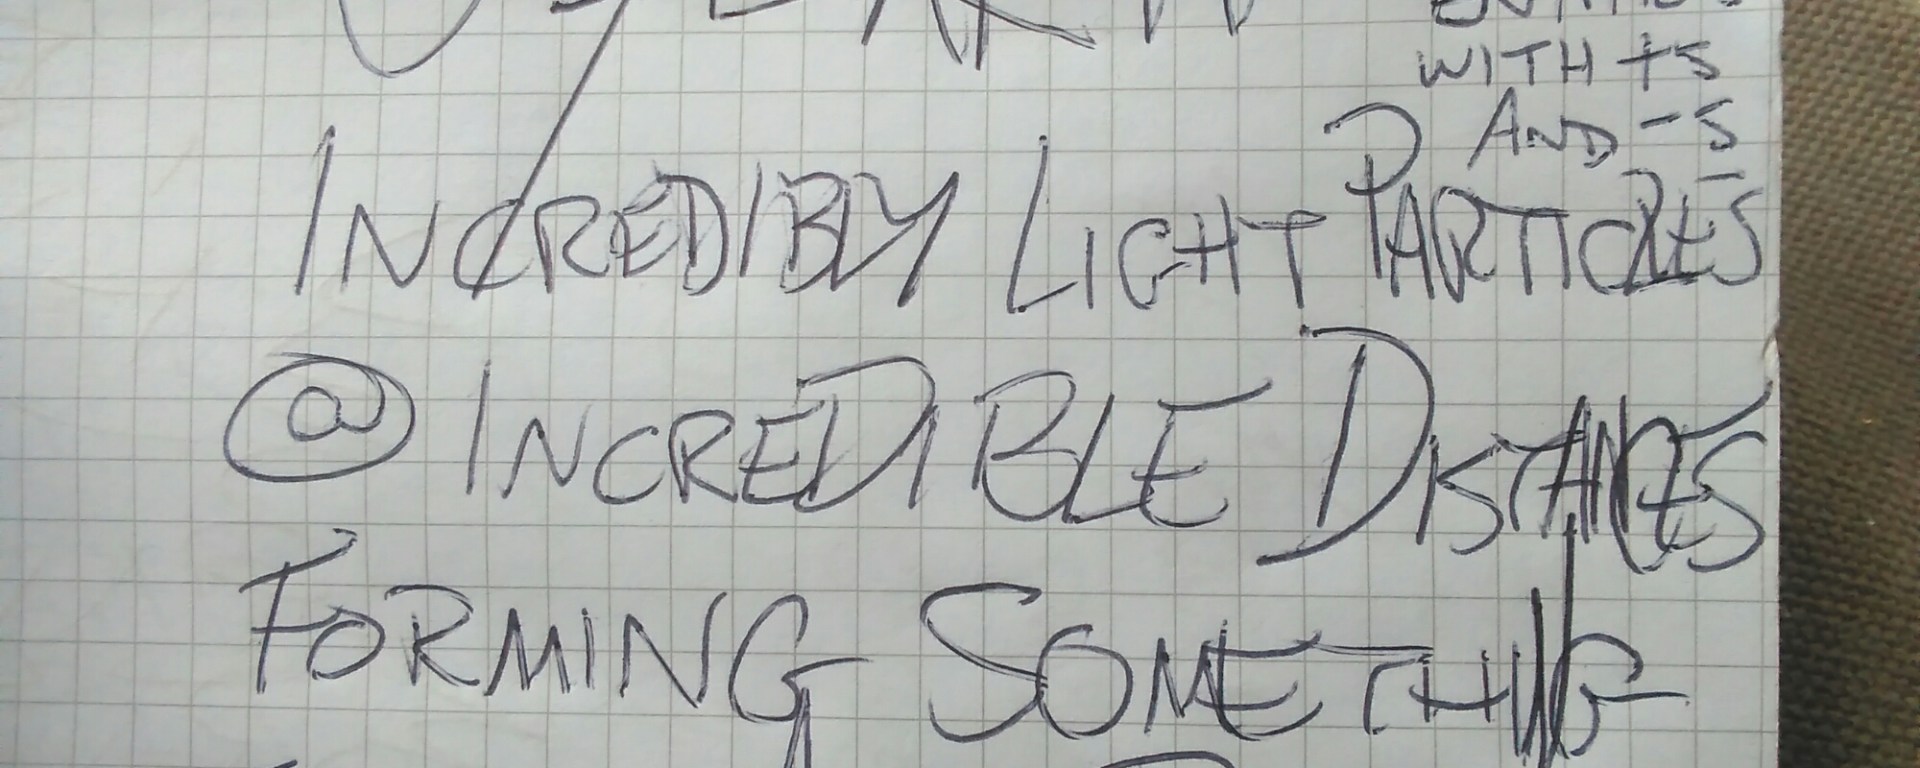 WITH +S
AND -S
INCREDIBLY LIGHT PARTICLES
@ INCREDIBLE DISTANCES
FORMING SOMETHING